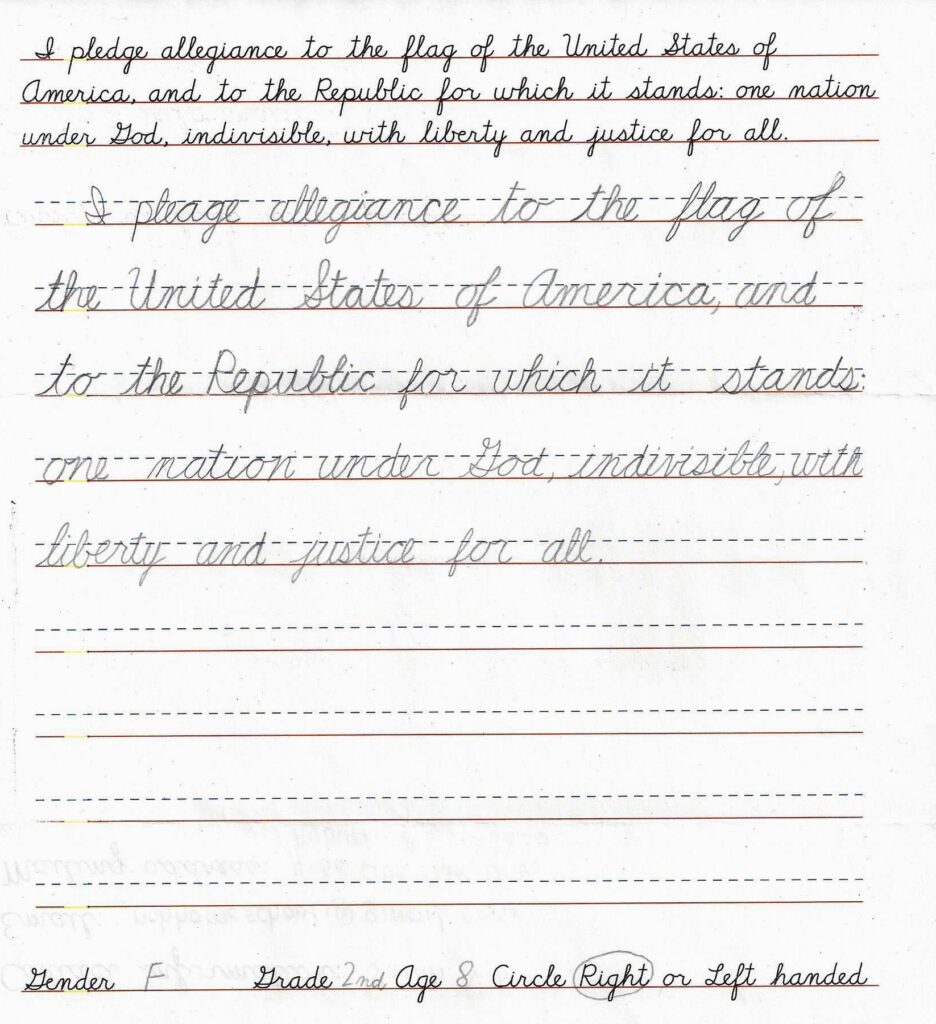 I pledge allegiance to the flag of the United States of
America, and to the Republic for which it stands: one nation
under God, indivisible, with liberty and justice for all.
I pleage allegiance to the flag of
the United States of America, and
to the Republic for which it stands:
one nation under God, indivisible, with
liberty and justice for all.
Gender F Grade 2nd Age 8 Circle Right or Left handed